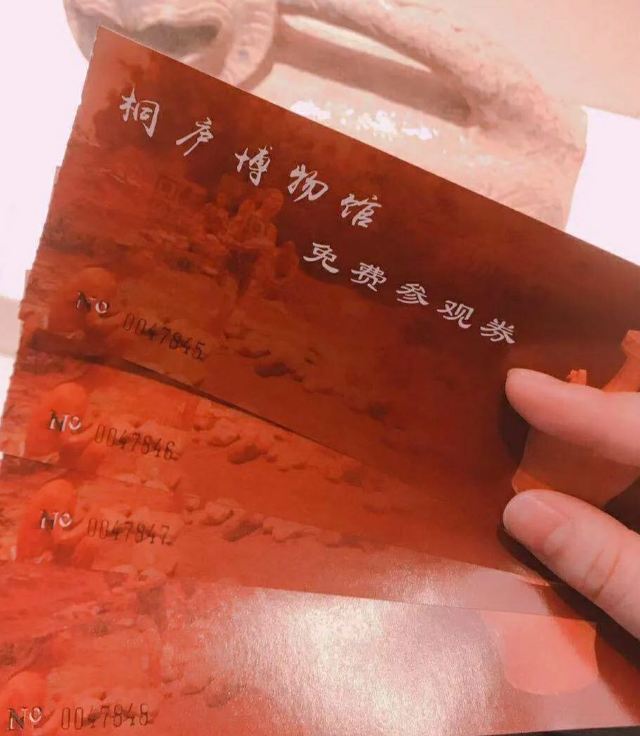 桐庐博物馆
免费参观券
№ 0047845
№ 0047846
№ 0047847
№ 0047848